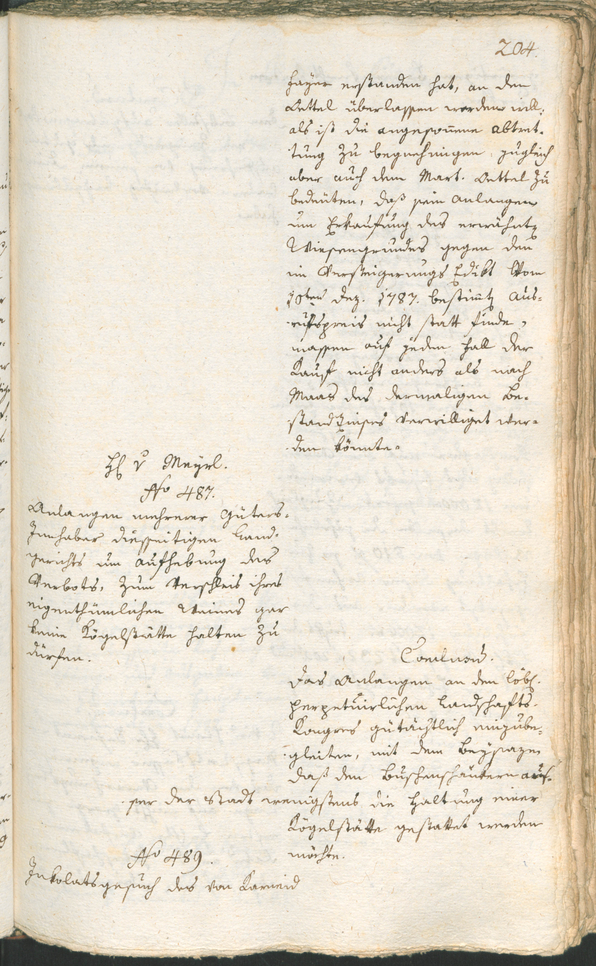 204.
Hayer erstanden hat, an den
Oettel überlassen werden will;
als ist die angekommene Abtret-
tung zu begnehmigen, zugleich
aber auch dem Mart. Oettel zu
bedeuten, daß sein Anlangen
um Erkaufung des erwähnten
Wiesengrundes gegen den
im Versteigerungs Edikt vom
10ten Dez. 1787. bestimmten Aus-
rufspreis nicht statt finde,
massen auf jeden Fall der
Kauf nicht anders als nach
Maas des dermaligen Be-
standzinses verwilliget wer-
den könnte.
H v Mayrl.
No 487.
Anlangen mehrerer Güters-
Innhaber diesseitigen Land-
gerichts um Aufhebung des
Verbots, zum Verschleis ihres
eigenthümlichen Weines gar
keine Kögelstätte halten zu
dürfen.
Conclusum.
Das Anlangen an den löbl.
perpetuirlichen Landschafts-
Kongres gutächtlich einzube-
gleiten, mit dem Beysaze
daß den Buschenschänkern aus-
ser der Stadt wenigstens die Haltung einer
Kögelstätte gestattet werden
möchte.
No 489.
Inkolatsgesuch des von Karneid